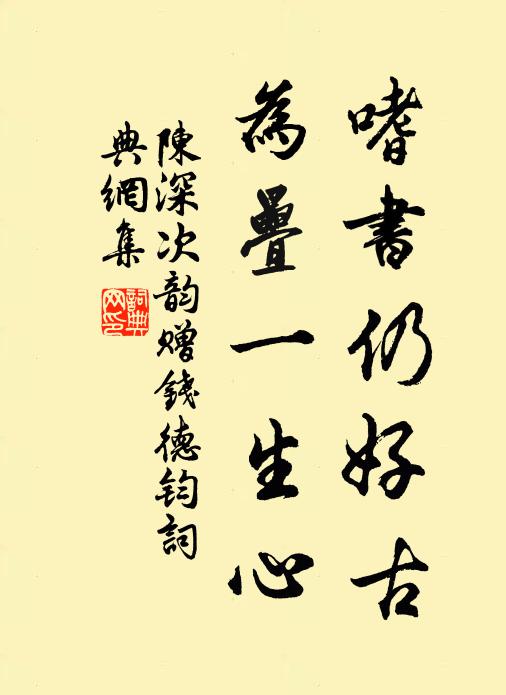 嗜書仍好古
為疊一生心
陳深次韵贈錢德鈞詞
典網集
詞典网印